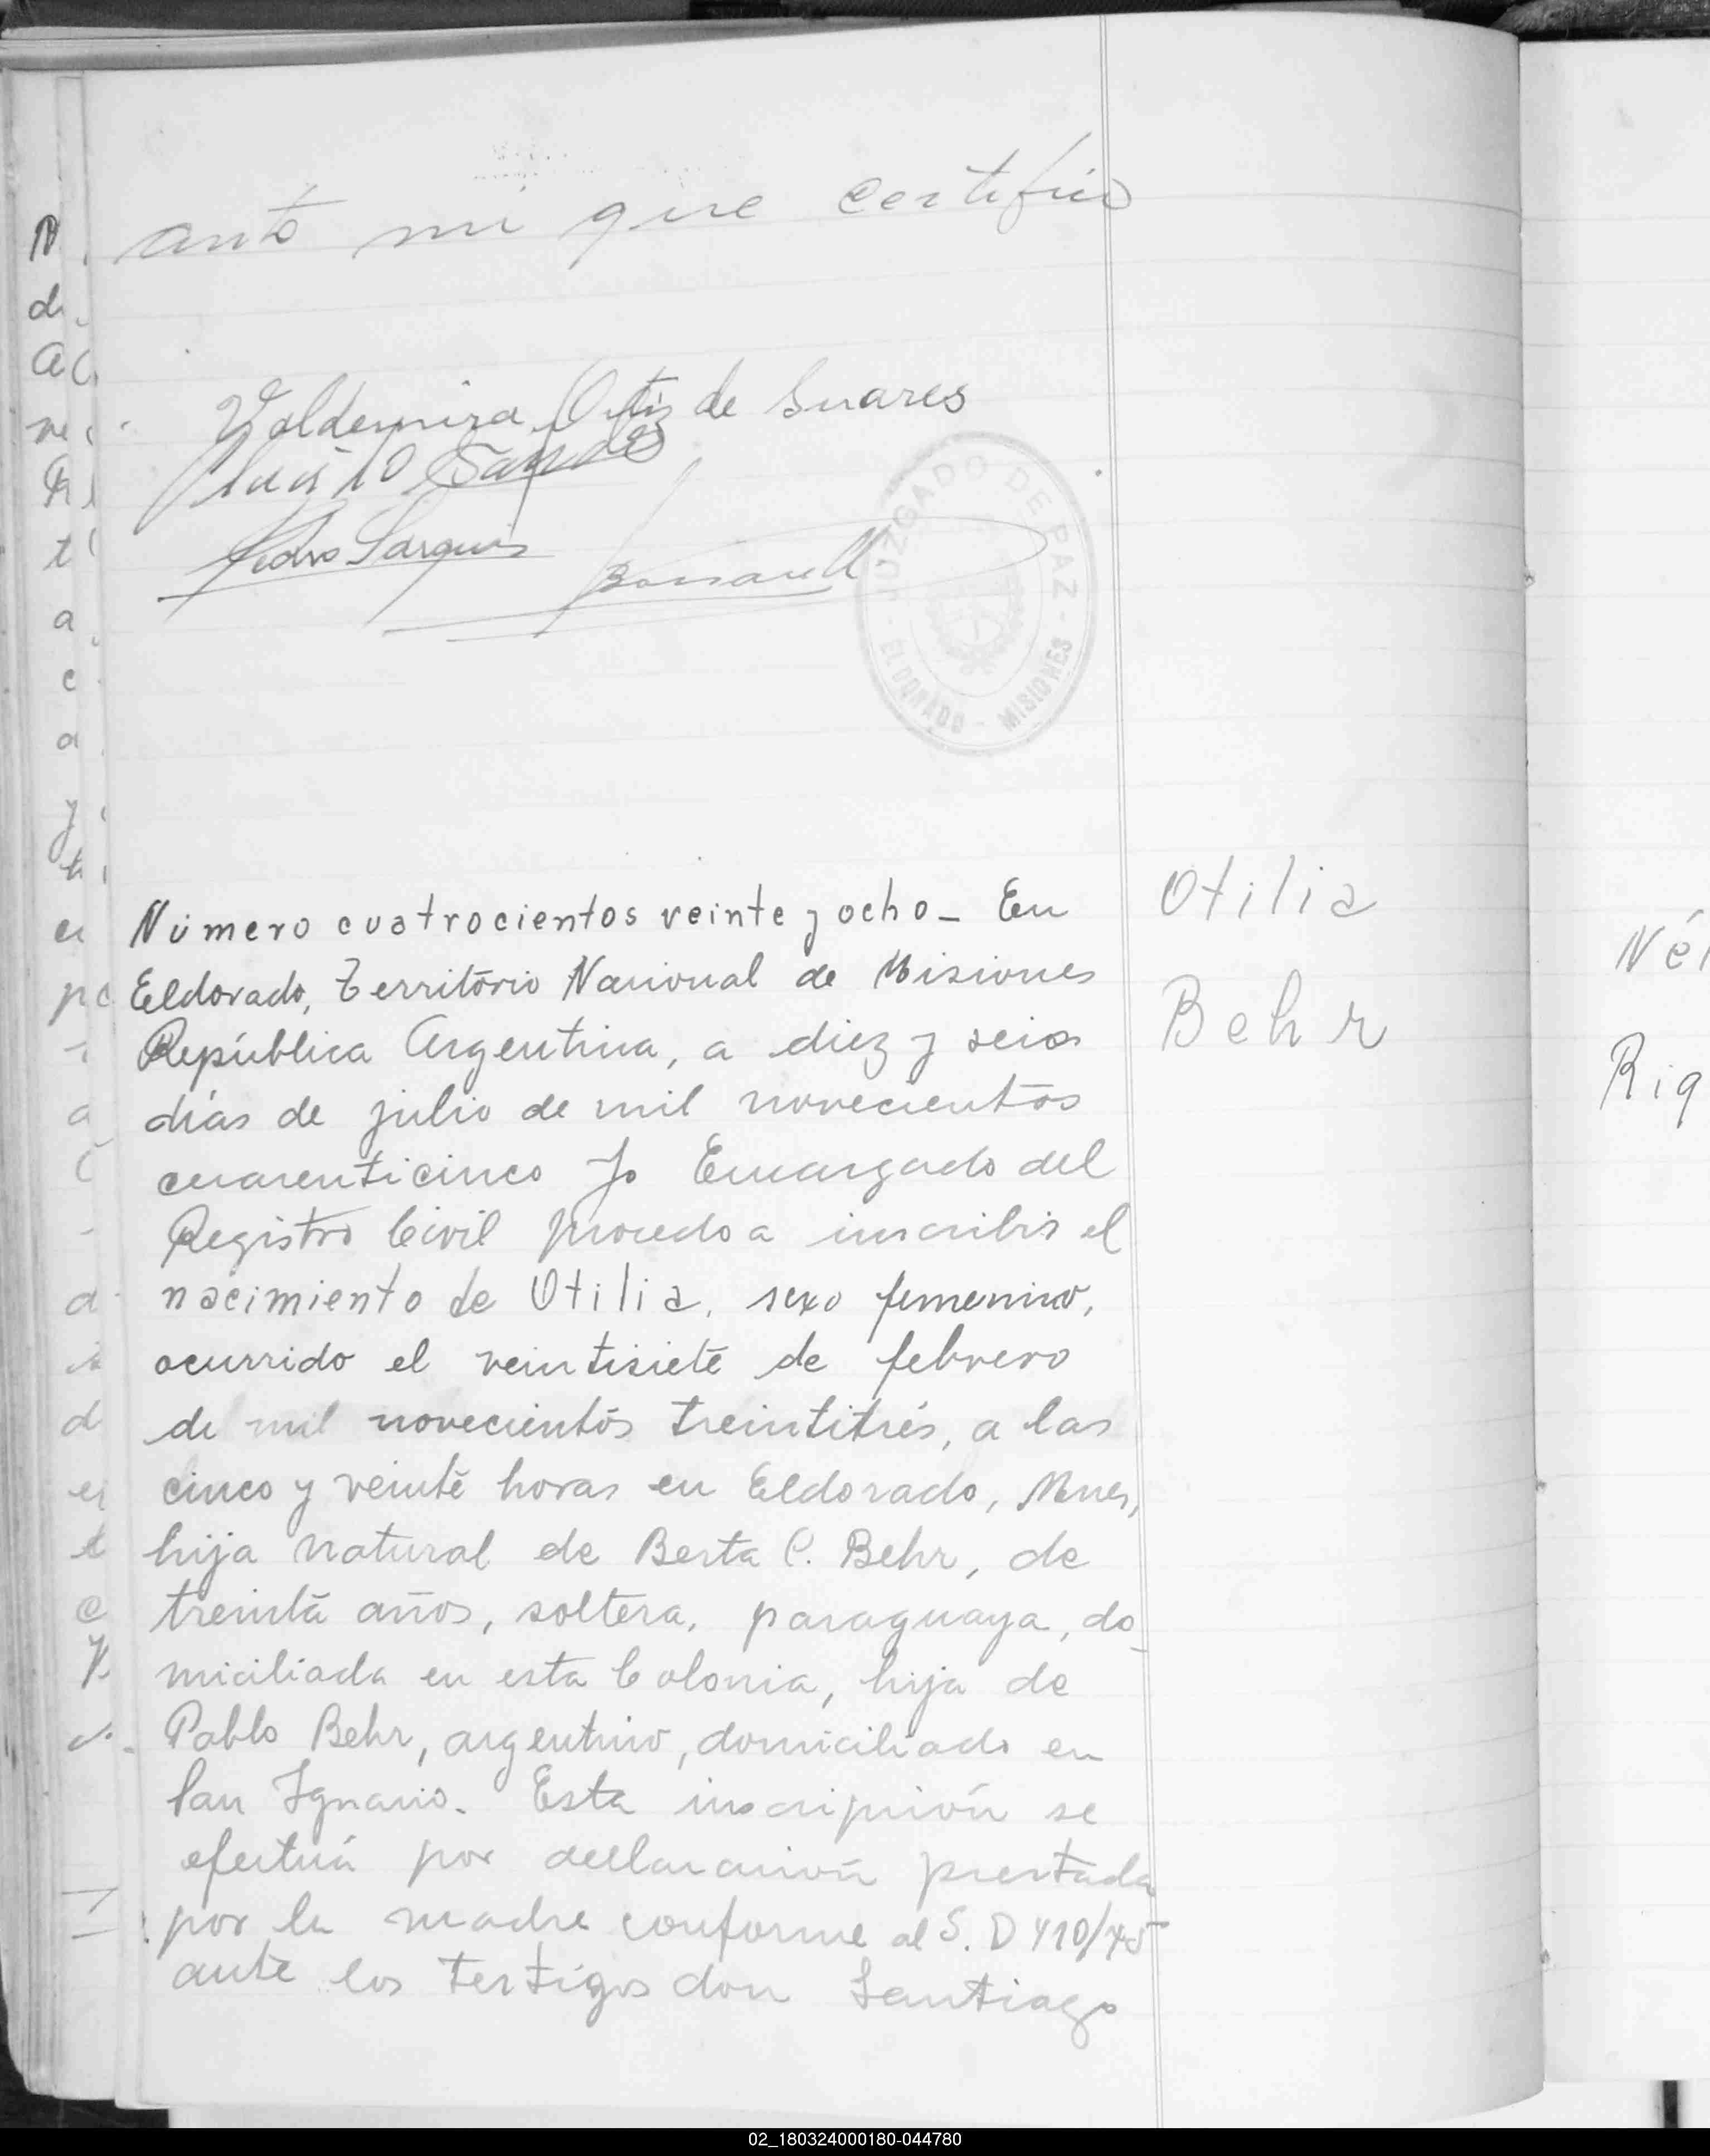 ante mi que certifico
Valdemira Ortiz de Suares
Pedro Sarquis
JUZGADO DE PAZ
ELDORADO - MISIONES
Otilia
Behr
Número cuatrocientos veinte y ocho - En
Eldorado, Territorio Nacional de Misiones
República Argentina, a diez y seis
días de julio de mil novecientos
cuarenticinco Yo Encargado del
Registro Civil procedo a inscribir el
nacimiento de Otilia, sexo femenino,
ocurrido el veintisiete de febrero
de mil novecientos treintitrés, a las
cinco y veinte horas en Eldorado, Mnes,
hija natural de Berta C. Behr, de
treinta años, soltera, paraguaya, do_
miciliada en esta Colonia, hija de
Pablo Behr, argentino, domiciliado en
San Ignacio. Esta inscripción se
efectuá por declaración prestada
por la madre conforme al S. D 410/45
ante los testigos don Santiago
Né
Rig
02_180324000180-044780